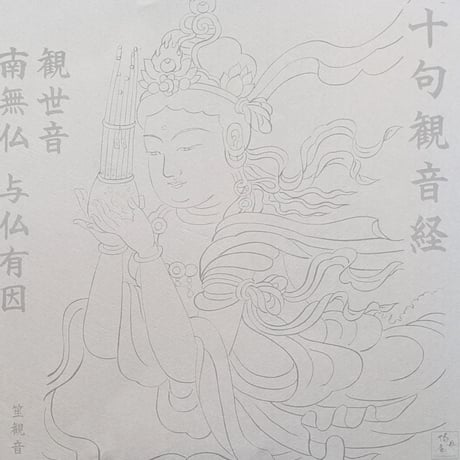 十句観音経
観世音
南無仏 与仏有因
笙観音